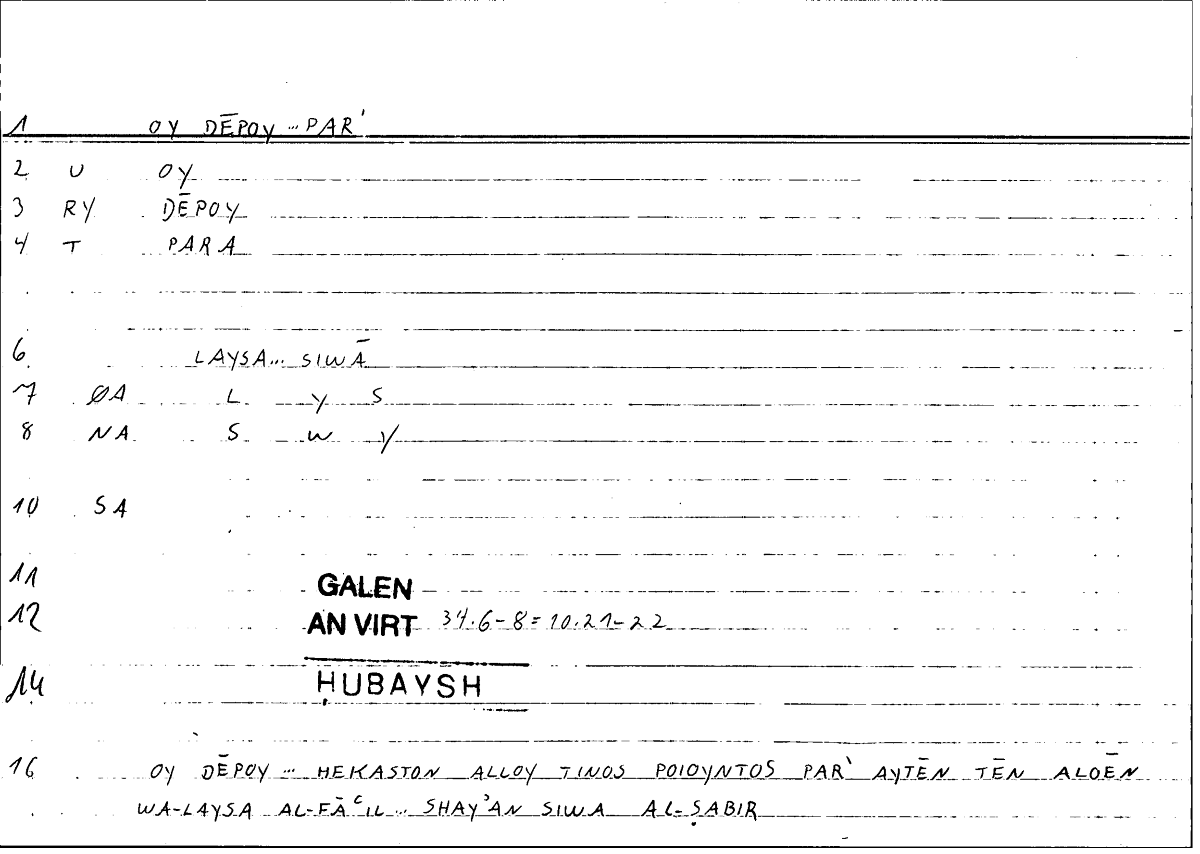 1 OY DĒPOY ... PAR'
2 U OY
3 RY DĒPOY
4 T PARA
6 LAYSA... SIWĀ
7 ØA L Y S
8 NA S W Y
10 SA
11 GALEN
12 AN VIRT 34.6-8=10.21-22
14 ḤUBAYSH
16 OY DĒPOY ... HEKASTON ALLOY TINOS POIOYNTOS PAR' AYTĒN TĒN ALOĒN
WA-LAYSA AL-FĀʿIL ... SHAYʾAN SIWA AL-ṢABIR